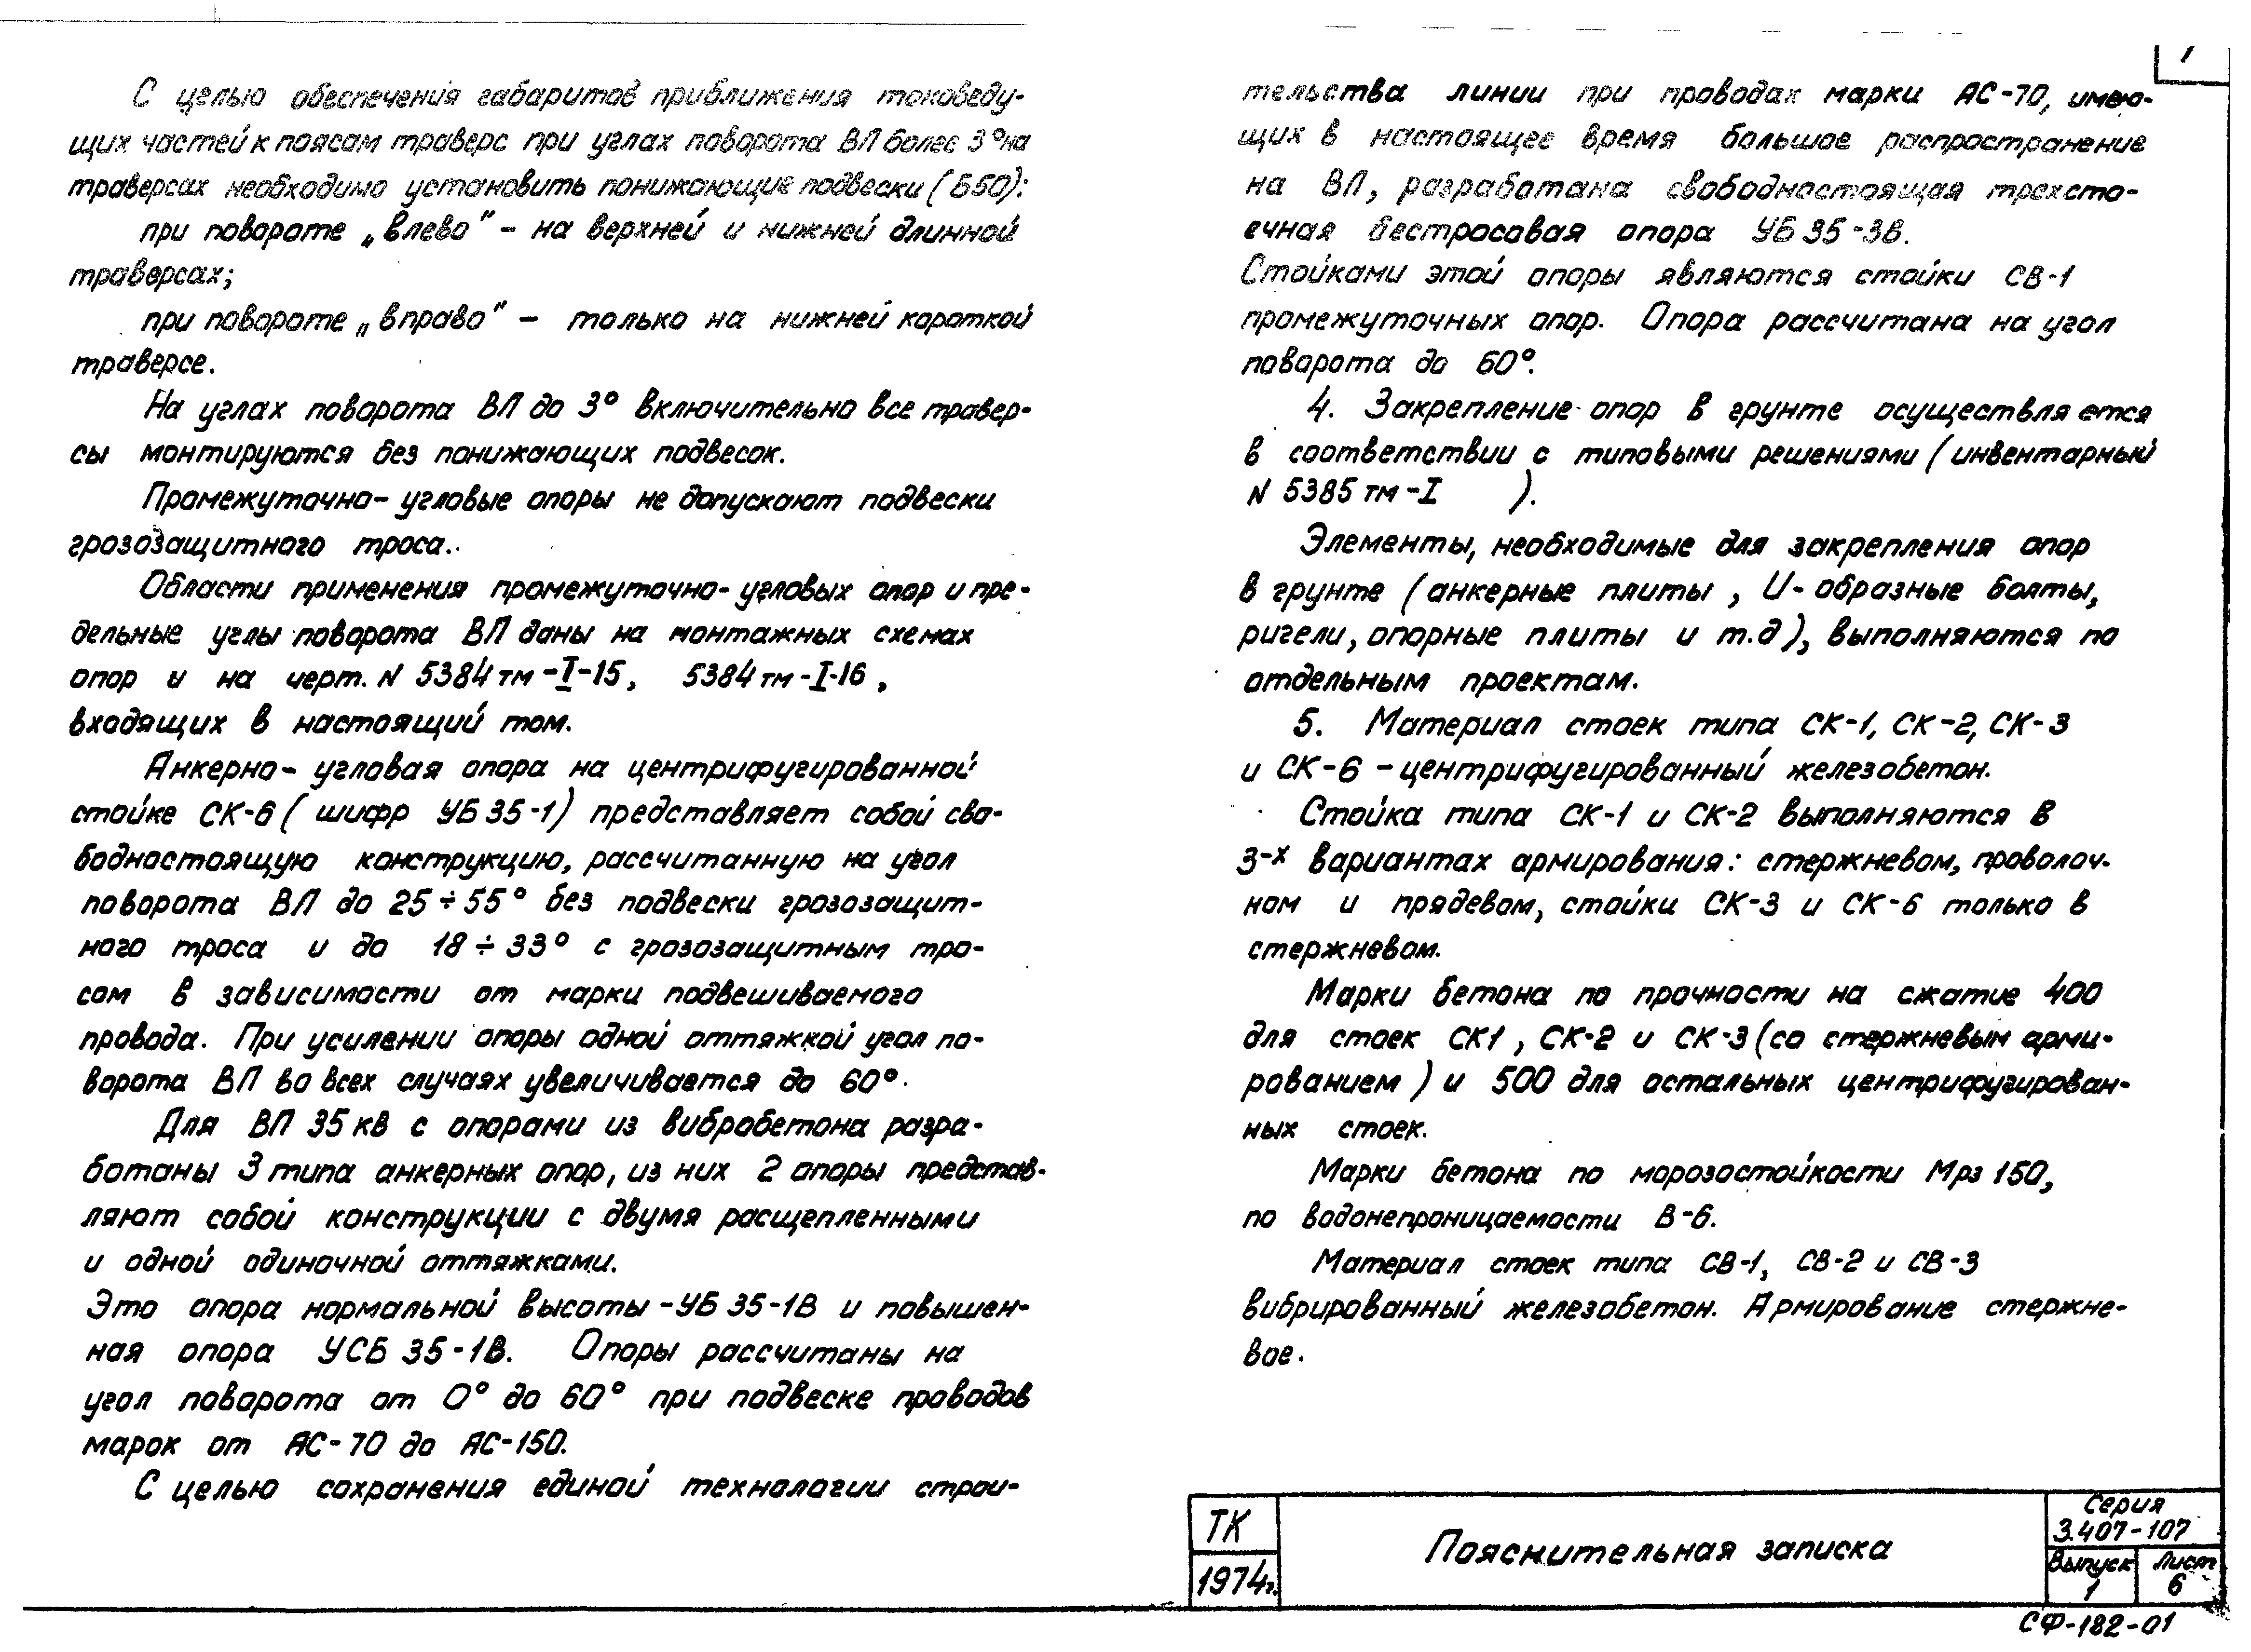 С целью обеспечения габаритов приближения токоведу-
щих частей к поясам траверс при углах поворота ВЛ более 3° на
траверсах необходимо установить понижающие подвески (Б50):
при повороте „влево" - на верхней и нижней длинной
траверсах;
при повороте „вправо" - только на нижней короткой
траверсе.
На углах поворота ВЛ до 3° включительно все травер-
сы монтируются без понижающих подвесок.
Промежуточно-угловые опоры не допускают подвески
грозозащитного троса.
Области применения промежуточно-угловых опор и пре-
дельные углы поворота ВЛ даны на монтажных схемах
опор и на черт. N 5384тм-I-15, 5384тм-I-16,
входящих в настоящий том.
Анкерно-угловая опора на центрифугированной
стойке СК-6 (шифр УБ35-1) представляет собой сво-
бодностоящую конструкцию, рассчитанную на угол
поворота ВЛ до 25÷55° без подвески грозозащит-
ного троса и до 18÷33° с грозозащитным тро-
сом в зависимости от марки подвешиваемого
провода. При усилении опоры одной оттяжкой угол по-
ворота ВЛ во всех случаях увеличивается до 60°.
Для ВЛ 35кв с опорами из вибробетона разра-
ботаны 3 типа анкерных опор, из них 2 опоры представ-
ляют собой конструкции с двумя расщепленными
и одной одиночной оттяжками.
Это опора нормальной высоты -УБ35-1В и повышен-
ная опора УСБ35-1В. Опоры рассчитаны на
угол поворота от 0° до 60° при подвеске проводов
марок от АС-70 до АС-150.
С целью сохранения единой технологии строи-
1
тельства линии при проводах марки АС-70, имею-
щих в настоящее время большое распространение
на ВЛ, разработана свободностоящая трехсто-
ечная бестросовая опора УБ35-3В.
Стойками этой опоры являются стойки СВ-1
промежуточных опор. Опора рассчитана на угол
поворота до 60°.
4. Закрепление опор в грунте осуществляется
в соответствии с типовыми решениями (инвентарный
N 5385тм-I ).
Элементы, необходимые для закрепления опор
в грунте (анкерные плиты, U-образные болты,
ригели, опорные плиты и т.д), выполняются по
отдельным проектам.
5. Материал стоек типа СК-1, СК-2, СК-3
и СК-6 - центрифугированный железобетон.
Стойка типа СК-1 и СК-2 выполняются в
3-х вариантах армирования: стержневом, проволоч-
ном и прядевом, стойки СК-3 и СК-6 только в
стержневом.
Марки бетона по прочности на сжатие 400
для стоек СК1, СК-2 и СК-3 (со стержневым арми-
рованием) и 500 для остальных центрифугирован-
ных стоек.
Марки бетона по морозостойкости Мрз 150,
по водонепроницаемости В-6.
Материал стоек типа СВ-1, СВ-2 и СВ-3
вибрированный железобетон. Армирование стержне-
вое.
ТК
1974г.
Пояснительная записка
Серия
3.407-107
Выпуск
1
Лист
6
СФ-182-01